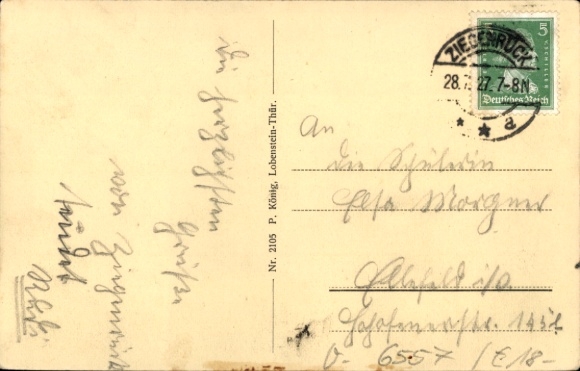 Die herzlichsten
Grüße
von Ziegenrück
sendet
Nr. 2105 P. König, Lobenstein-Thür.
5
ZIEGENRÜCK
28.7.27. 7-8N
* * a
Deutsches Reich
An
die Schülerin
Elsa Morgner
str. 145
0- 6557 /E 18-